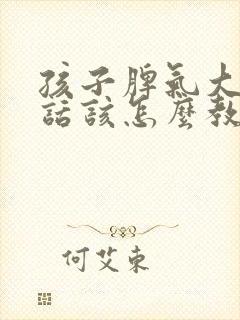 孩子脾氣大
話該怎麼教
何艾東